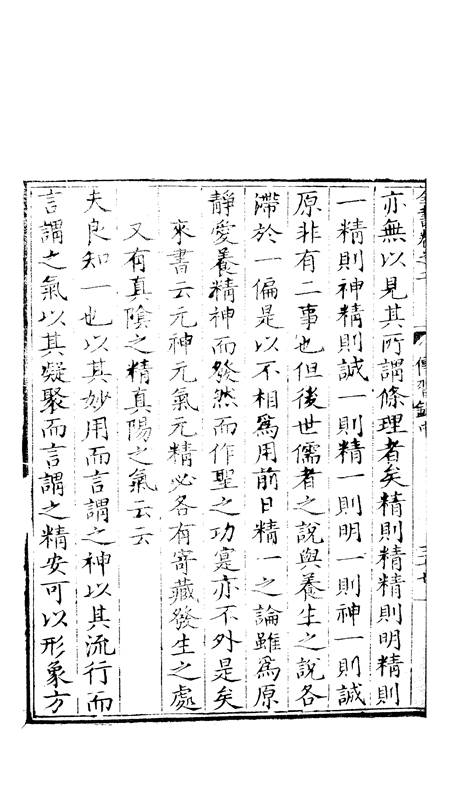 亦無以見其所謂條理者矣精則精精則明精則
一精則神精則誠一則精一則明一則神一則誠
原非有二事也但後世儒者之說與養生之說各
滯於一偏是以不相爲用前日精一之論雖爲原
靜愛養精神而發然而作聖之功寔亦不外是矣
來書云元神元氣元精必各有寄藏發生之處
又有真陰之精真陽之氣云云
夫良知一也以其妙用而言謂之神以其流行而
言謂之氣以其凝聚而言謂之精安可以形象方